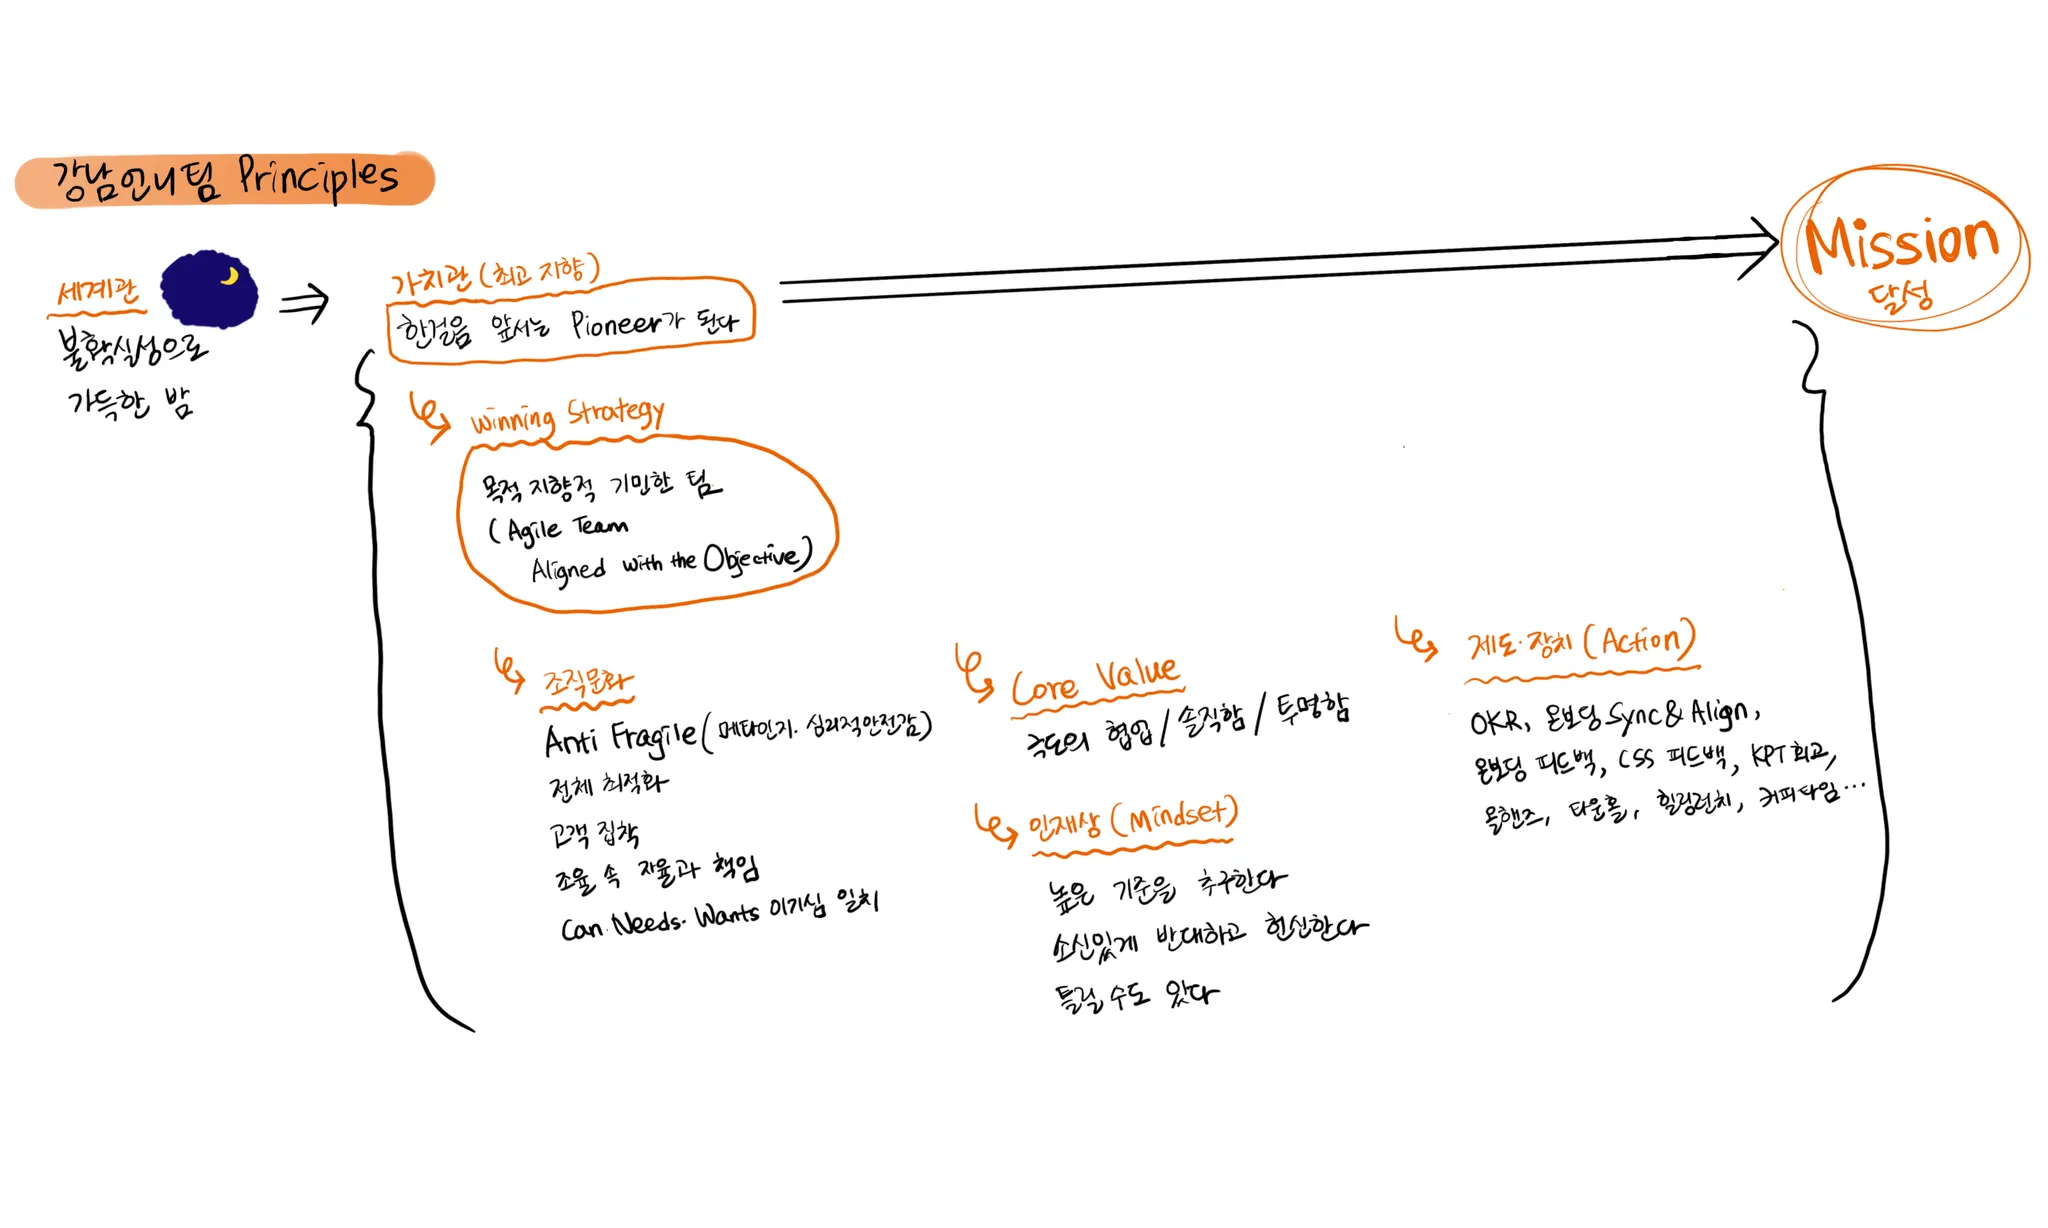 강남언니팀 Principles
세계관
불확실성으로
가득한 밤
가치관 (최고 지향)
한걸음 앞서는 Pioneer가 된다
Mission
달성
Winning Strategy
목적 지향적 기민한 팀
(Agile Team
Aligned with the Objective)
조직문화
Anti Fragile (메타인지. 심리적안전감)
전체 최적화
고객 집착
조율 속 자율과 책임
Can. Needs. Wants 이기심 일치
Core Value
극도의 협업 / 솔직함 / 투명함
인재상 (Mindset)
높은 기준을 추구한다
소신있게 반대하고 헌신한다
틀릴 수도 있다
제도·장치 (Action)
OKR, 온보딩 Sync & Align,
온보딩 피드백, CSS 피드백, KPT 회고,
올핸즈, 타운홀, 힐링런치, 커피타임...